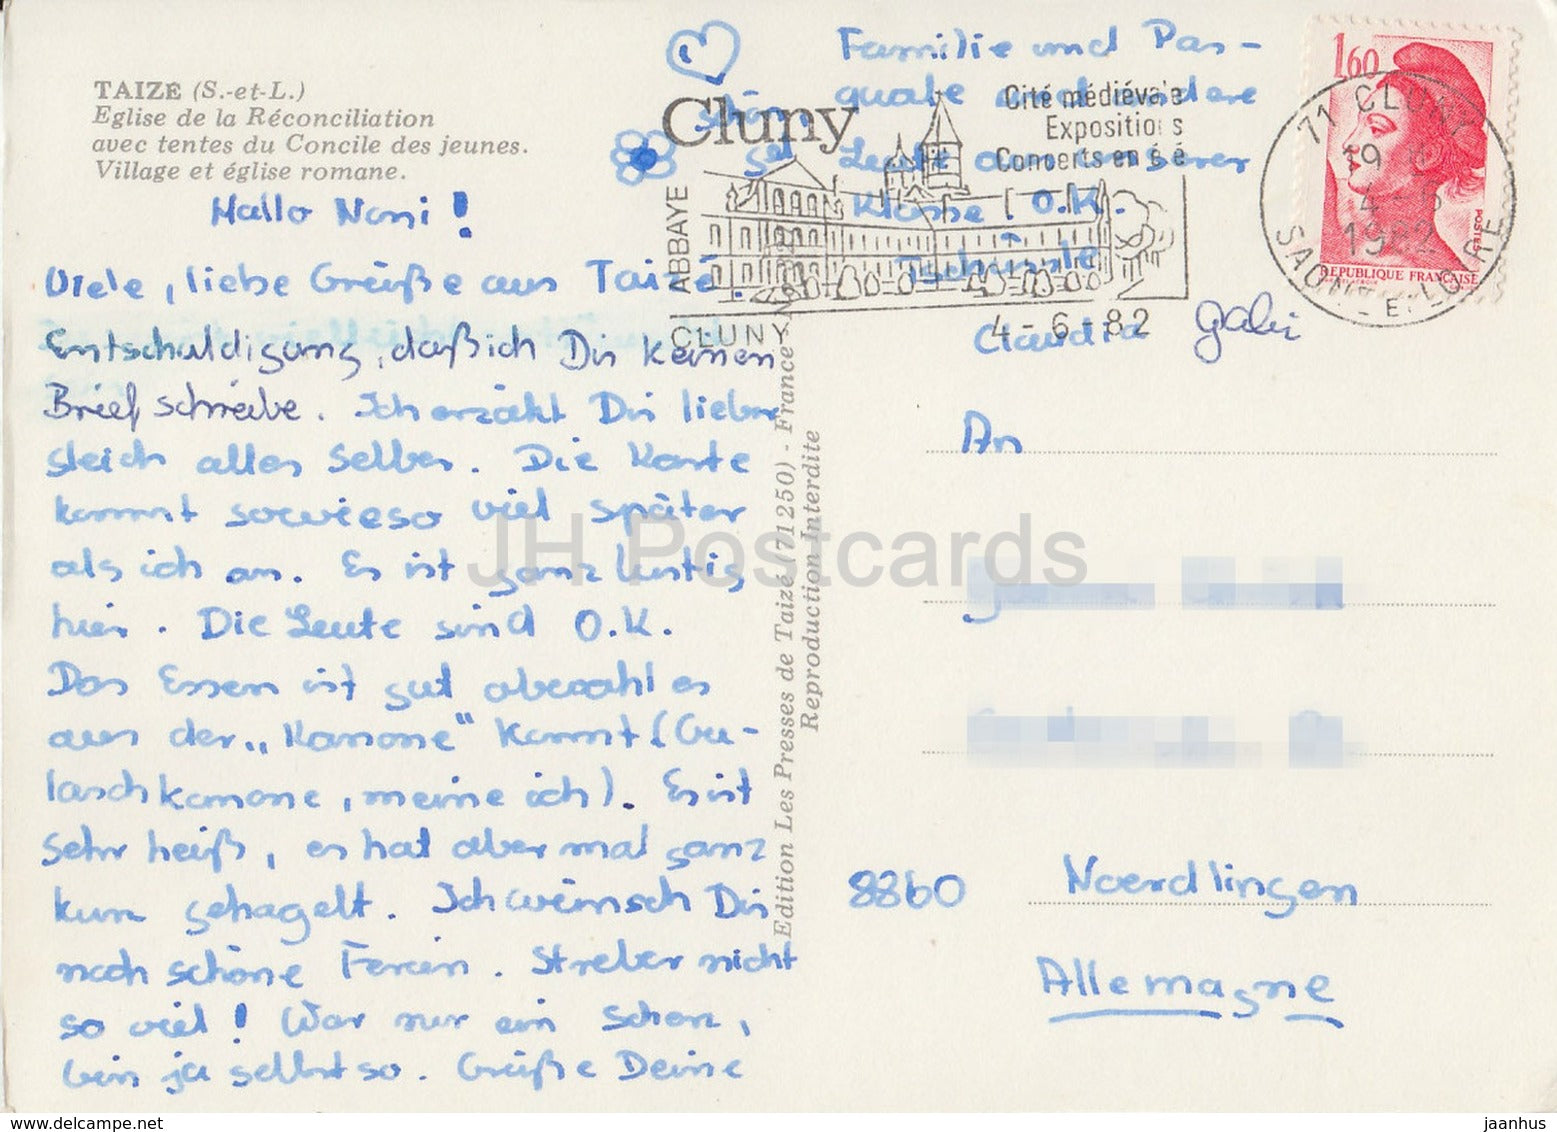 TAIZE (S.-et-L.)
Eglise de la Réconciliation
avec tentes du Concile des jeunes.
Village et église romane.
Hallo Nani !
Viele, liebe Grüße aus Taizé.
Entschuldigung, daß ich Dir keinen
Brief schreibe. Ich erzähl Dir lieber
gleich alles selber. Die Karte
kommt sowieso viel später
als ich an. Es ist ganz lustig
hier. Die Leute sind O.K.
Das Essen ist gut obwohl es
aus der „Kanone" kommt (Gu-
laschkanone, meine ich). Es ist
sehr heiß, es hat aber mal ganz
kurz gehagelt. Ich wünsch Dir
noch schöne Ferien. Streber nicht
so viel ! War nur ein Scherz,
bin ja selbst so. Grüße Deine
Familie und Pas-
quale
Leute aus unserer
Klasse O.K.
Tschüßle
Claudia Gabi
Cluny
Cité médiévale
Expositions
Concerts en été
ABBAYE
CLUNY
4-6-82
1,60
POSTES
REPUBLIQUE FRANÇAISE
71 CLUNY
19 H
4-6
1982
SAONE-ET-LOIRE
Edition Les Presses de Taizé (71250) - France -
Reproduction Interdite
An
8860 Noerdlingen
Allemagne
JH Postcards
www.delcampe.net
jaanhus